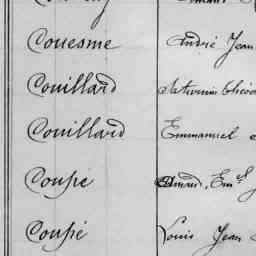 Couesme André Jean
Couillard Saturnin
Couillard Emmanuel
Coupé Amand, Em.
Coupé Louis Jean